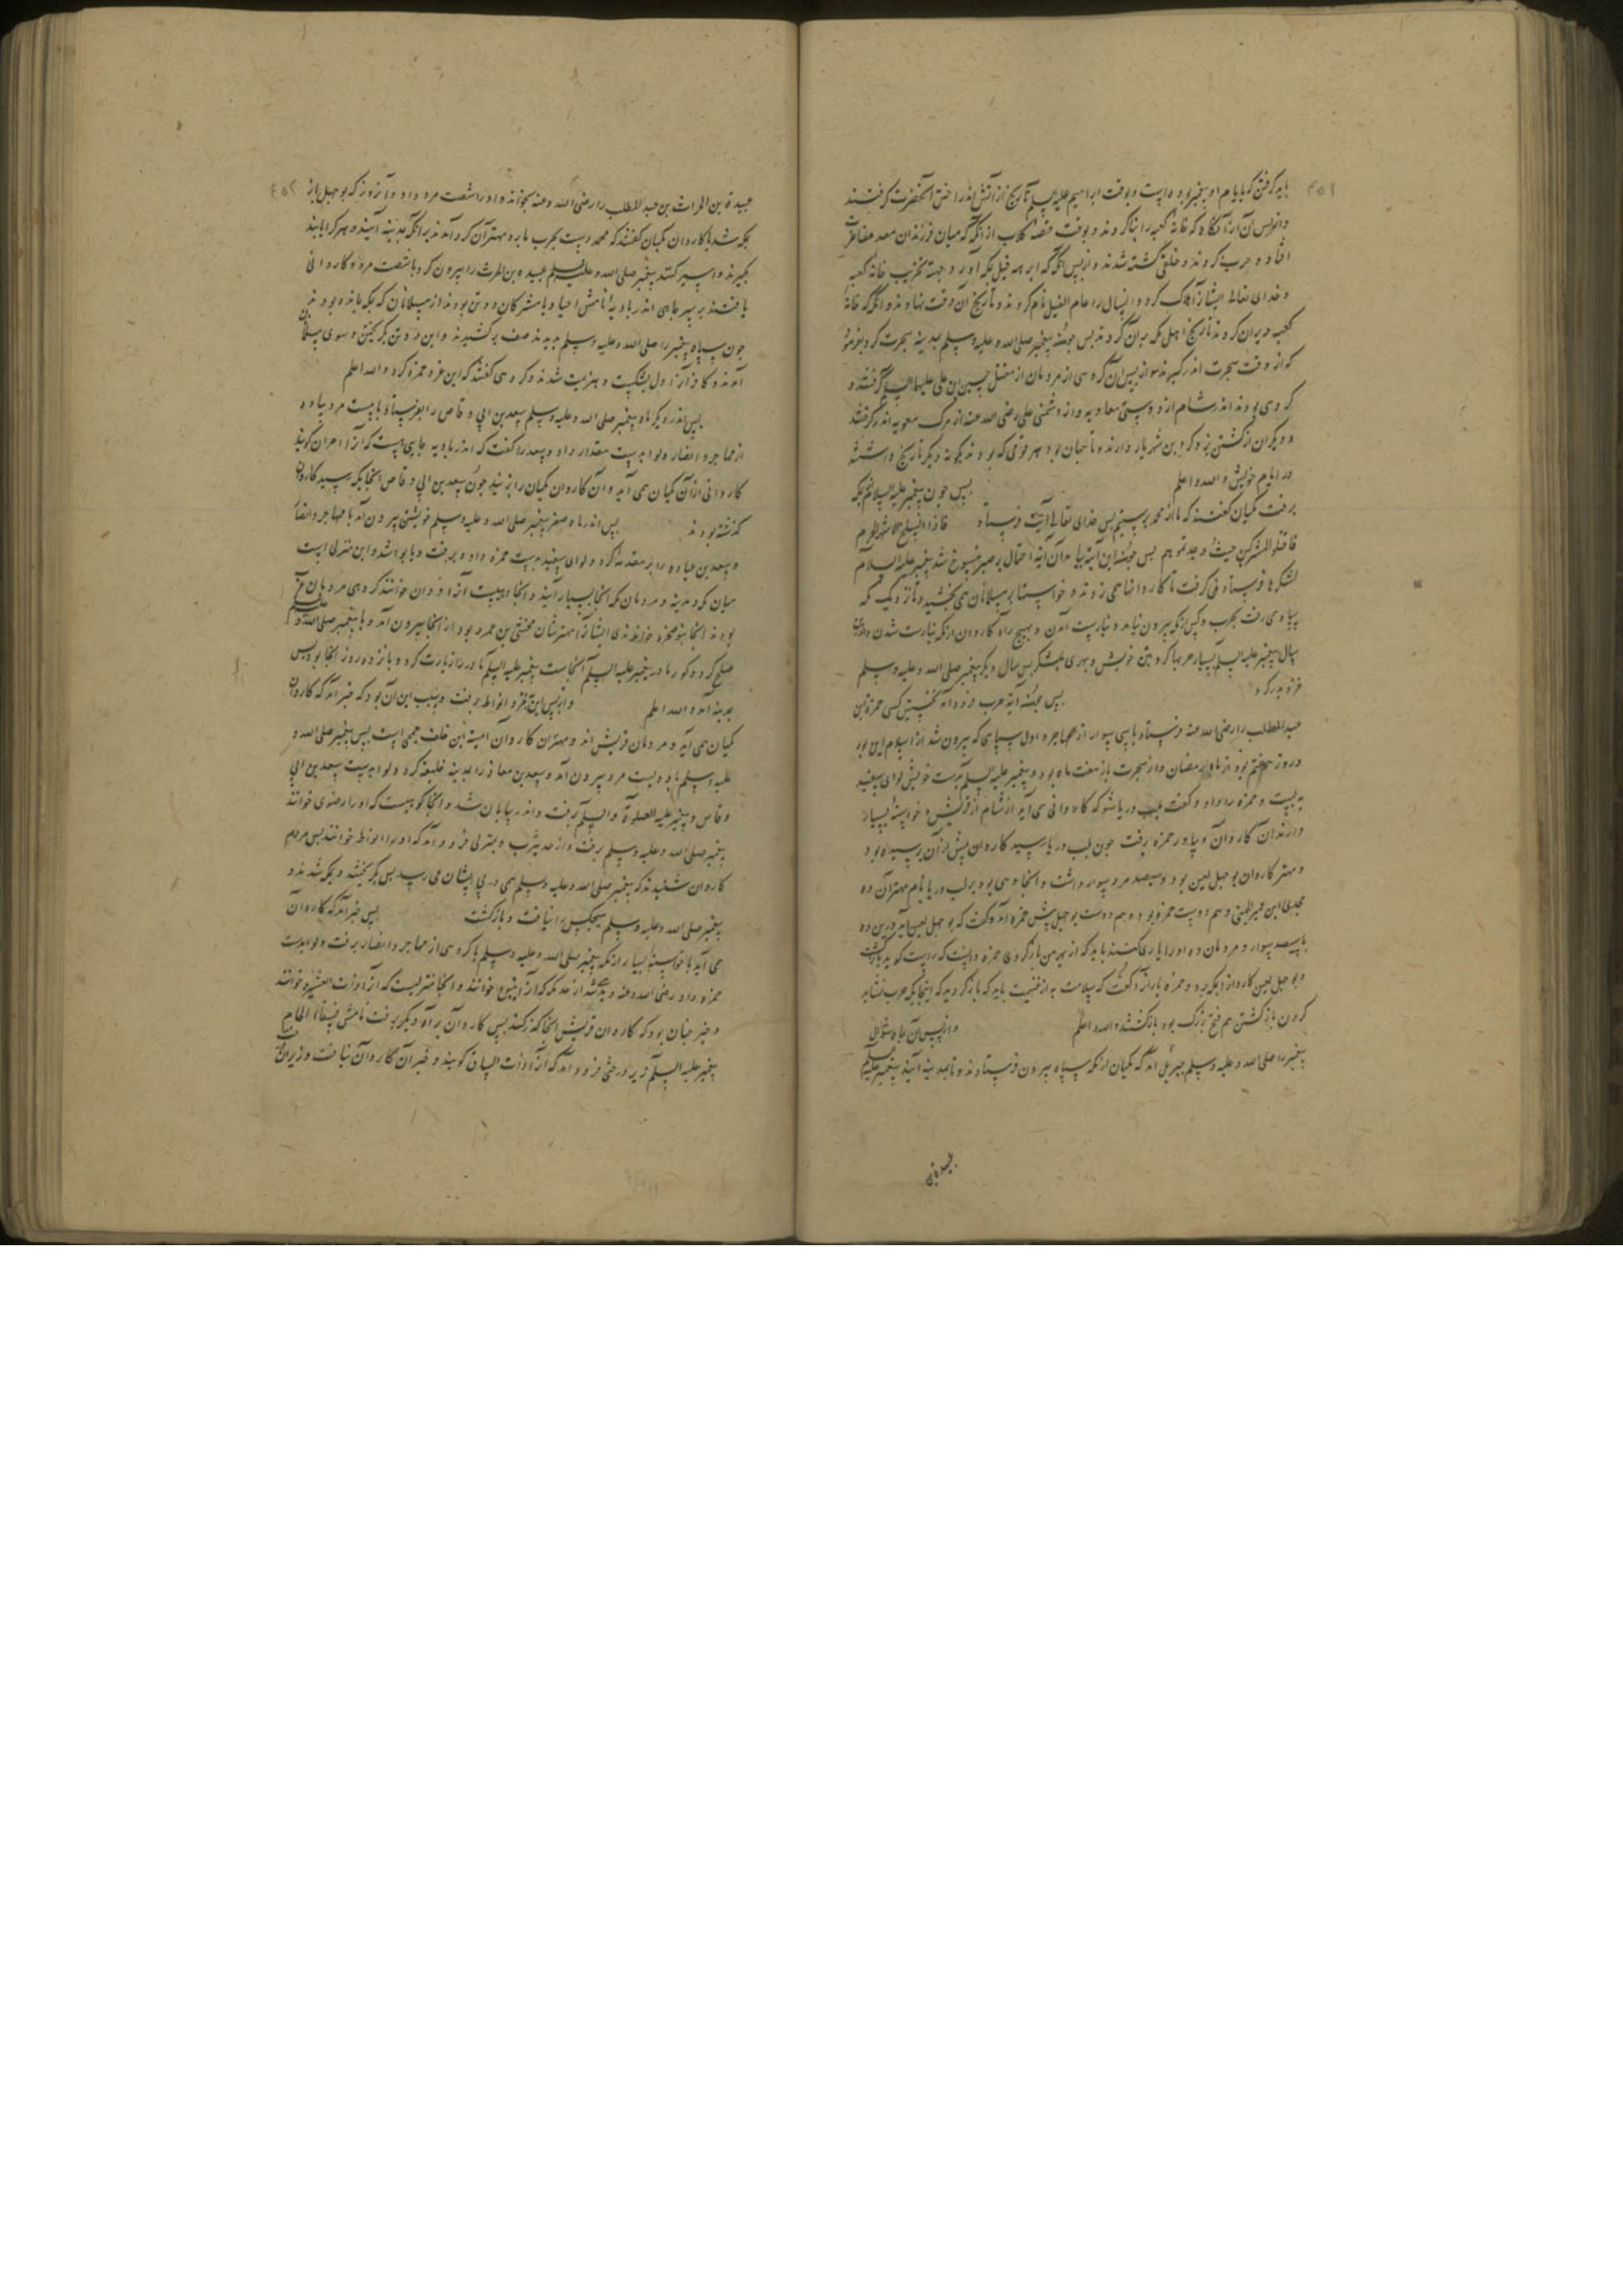 باید گرفتن که بایام او پیغمبر بوده است و بوقت ابراهیم علیه السلم تاریخ از آتش اندر انداختن آنحضرت گرفتند
و از پس آن از آنگاه که خانه کعبه را بنا کردند و بوقت قصه کلاب از آنگه که میان فرزندان معد مفاخرت
افتاد و حرب کردند و خلقی کشته شدند و از پس آنگه که ابرهه فیل بمکه آورد و جهة تخریب خانه کعبه
و خدای تعالی ایشانرا هلاک کرد و آنسال را عام الفیل نام کردند و تاریخ آن وقت نهادند و آنگه که خانه
کعبه ویران کردند تاریخ اهل مکه بدان کردند پس چون پیغمبر صلی الله و علیه وسلم بمدینه هجرت کرد بفرمود
که از وقت هجرت اندر گیرند و از پس آن گروهی از مردمان از مقتل حسین بن علی علیهما السلم گرفتند و
گروهی بودند اندر شام از دوستی معاویه و از دشمنی علی رضی الله عنه از مرگ معویه اندر گرفتند
و دیگران از کشتن یزدگرد بن شهریار دارند و تا جهان بود هر قومی که بودند بگونه دیگر تاریخ داشتند
در ایام خویش و الله اعلم پس چون پیغمبر علیه السلام از مکه
برفت مکیان گفتند که ما از محمد برستیم پس خدای تعالی آیت فرستاد فاذا انسلخ الاشهر الحرم
فاقتلوا المشرکین حیث وجدتموهم پس چون این آیة بیامد آن آیة احتمال بر صبر منسوخ شد پیغمبر علیه السلام
لشکرها فرستادن گرفت تا کاروانها می زدند و خواستها بر مسلمانان می بخشید و تا نزدیک مکه
سپاه می رفت بحرب و کس از مکه بیرون نیامد و نیارست آمدن و بهیچ راه کاروان از مکه نیارست شدن و اندرین
سال پیغمبر علیه السلم بسیار حربها کرد بتن خویش و بهری بلشکر پس سال دیگر پیغمبر صلی الله و علیه وسلم
غزو بدر کرد پس چون آیة حرب فرود آمد نخستین کسی حمزة بن
عبد المطلب را رضی الله عنه فرستاد با سی سوار از مهاجر و اول سپاهی که بیرون شد از اسلام این بود
در روز هفتم بود از ماه رمضان و از هجرت باز هفت ماه بود و پیغمبر علیه السلم بدست خویش لوای سفید
به بست و حمزه را داد و گفت بلب دریا شو که کاروانی می آید از شام از قریش و خواسته بسیار
دارند آن کاروان و بیاور حمزه رفت چون بلب دریا رسید کاروان پیش از آن برسیده بود
و مهتر کاروان بو جهل لعین بود و سیصد مرد سوار داشت و آنجا دهی بود بر لب دریا نام مهتر آن ده
مجدی ابن عمیر الجهنی و هم دوست حمزه بود و هم دوست بو جهل پیش حمزه آمد و گفت که بو جهل لعین آمد درین ده
با سیصد سوار و مردمان ده او را یاری کنند باید که از بهر من باز گردی حمزه دانست که راست گوید باز گشت
و بو جهل لعین کاروانرا بمکه برد و حمزه یارانرا گفت که سلامت به از غنیمت باید که باز گردید که اینجا یکه حرب نشاید
کردن باز گشتن هم فتح بزرگ بود باز گشتند و الله اعلم و از پس آن ماه شوال
پیغمبر را صلی الله و علیه وسلم جبرئیل آمد که مکیان از مکه سپاه بیرون فرستادند و تا بمدینه آیند پیغمبر علیه السلم
عبیدة بن الحراث بن عبد المطلب را رضی الله و عنه بخواند و او را شصت مرد داد و آنروز که بو جهل باز
بمکه شد با کاروان مکیان گفتند که محمد دست بحرب ما برد مهتران گرد آمدند بر آنکه بمدینه آیند و هر کرا یابند
بگیرند و اسیر کنند پیغمبر صلی الله و علیه وسلم عبیده بن الحرث را بیرون کرد با شصت مرد و کاروانی
یافتند بر سر چاهی اندر بادیه نامش احیا و با مشرکان دو تن بودند از مسلمانان که بمکه مانده بودند
چون سپاه پیغمبر را صلی الله و علیه وسلم بدیدند صف بر کشیدند و این دو تن بگریختن و سوی مسلمانان
آمدند و کافرانرا دل بشکست و هزیمت شدند و گروهی گفتند که این غزو حمزه کرد و الله اعلم
پس اندر دیگر ماه پیغمبر صلی الله و علیه وسلم سعد بن ابی وقاص را بفرستاد با بیست مرد پیاده
از مهاجر و انصار و لوا بدست مقداد داد و سعد را گفت که اندر بادیه جایی هست که آنرا احران گویند
کاروانی از آن مکیان می آید و آن کاروان مکیان را بزنید چون سعد بن ابی وقاص آنجایگه رسید کاروان
گذشته بودند پس اندر ماه صفر پیغمبر صلی الله و علیه وسلم خویشتن بیرون آمد با مهاجر و انصار
و سعد بن عباده را بر مقدمه کرد و لوای سفید بدست حمزه داد و برفت و بابوا شد و این منزلی است
میان مکه و مدینه و مردمان مکه آنجا بسیار آیند و آنجا دهیست آنرا ودان خوانند گروهی مردمان عرب
بودند آنجا بنو ضمره خواندندی ایشانرا مهترشان مخشی بن عمرو بود از آنجا بیرون آمد و با پیغمبر صلی الله و علیه وسلم
صلح کرد و گور مادر پیغمبر علیه السلم آنجاست پیغمبر علیه السلم مادر را زیارت کرد و پانزده روز آنجا بود پس
بمدینه آمد و الله اعلم و از پس این بغزو ابواط رفت و سبب این آن بود که خبر آمد که کاروان
مکیان می آید و مردمان قریش اند و مهتران کاروان امیة ابن خلف جمحی است پس پیغمبر صلی الله و
علیه وسلم با دویست مرد بیرون آمد و سعد بن معاذ را بمدینه خلیفه کرد و لوا بدست سعد بن ابی
وقاص و پیغمبر علیه الصلوة و السلم برفت و اندر بیابان شد و آنجا کوهیست که او را رضوی خوانند
پیغمبر صلی الله و علیه وسلم برفت و از حد یثرب و بمنزلی فرود آمد که او را ابواط خوانند پس مردم
کاروان شنیدند که پیغمبر صلی الله و علیه وسلم همی در پی ایشان می رسد پس بگریختند و بمکه شدند و
پیغمبر صلی الله و علیه وسلم هیچکس را نیافت و باز گشت پس خبر آمد که کاروان
می آید با خواسته بسیار از مکه پیغمبر صلی الله و علیه وسلم با گروهی از مهاجر و انصار برفت و لوا بدست
حمزه داد رضی الله و عنه و بحدی شد از حد مکه که آنرا ینبوع خوانند و آنجا منزلیست که آنرا ذات العشیره خوانند
و خبر چنان بود که کاروان قریش آنجا گذر کند پس کاروان براه دیگر برفت نامش فیفاء الحام
پیغمبر علیه السلم زیر درختی فرود آمد که آنرا ذات الساق گویند و خبر آن کاروان نیافت و زیر آن